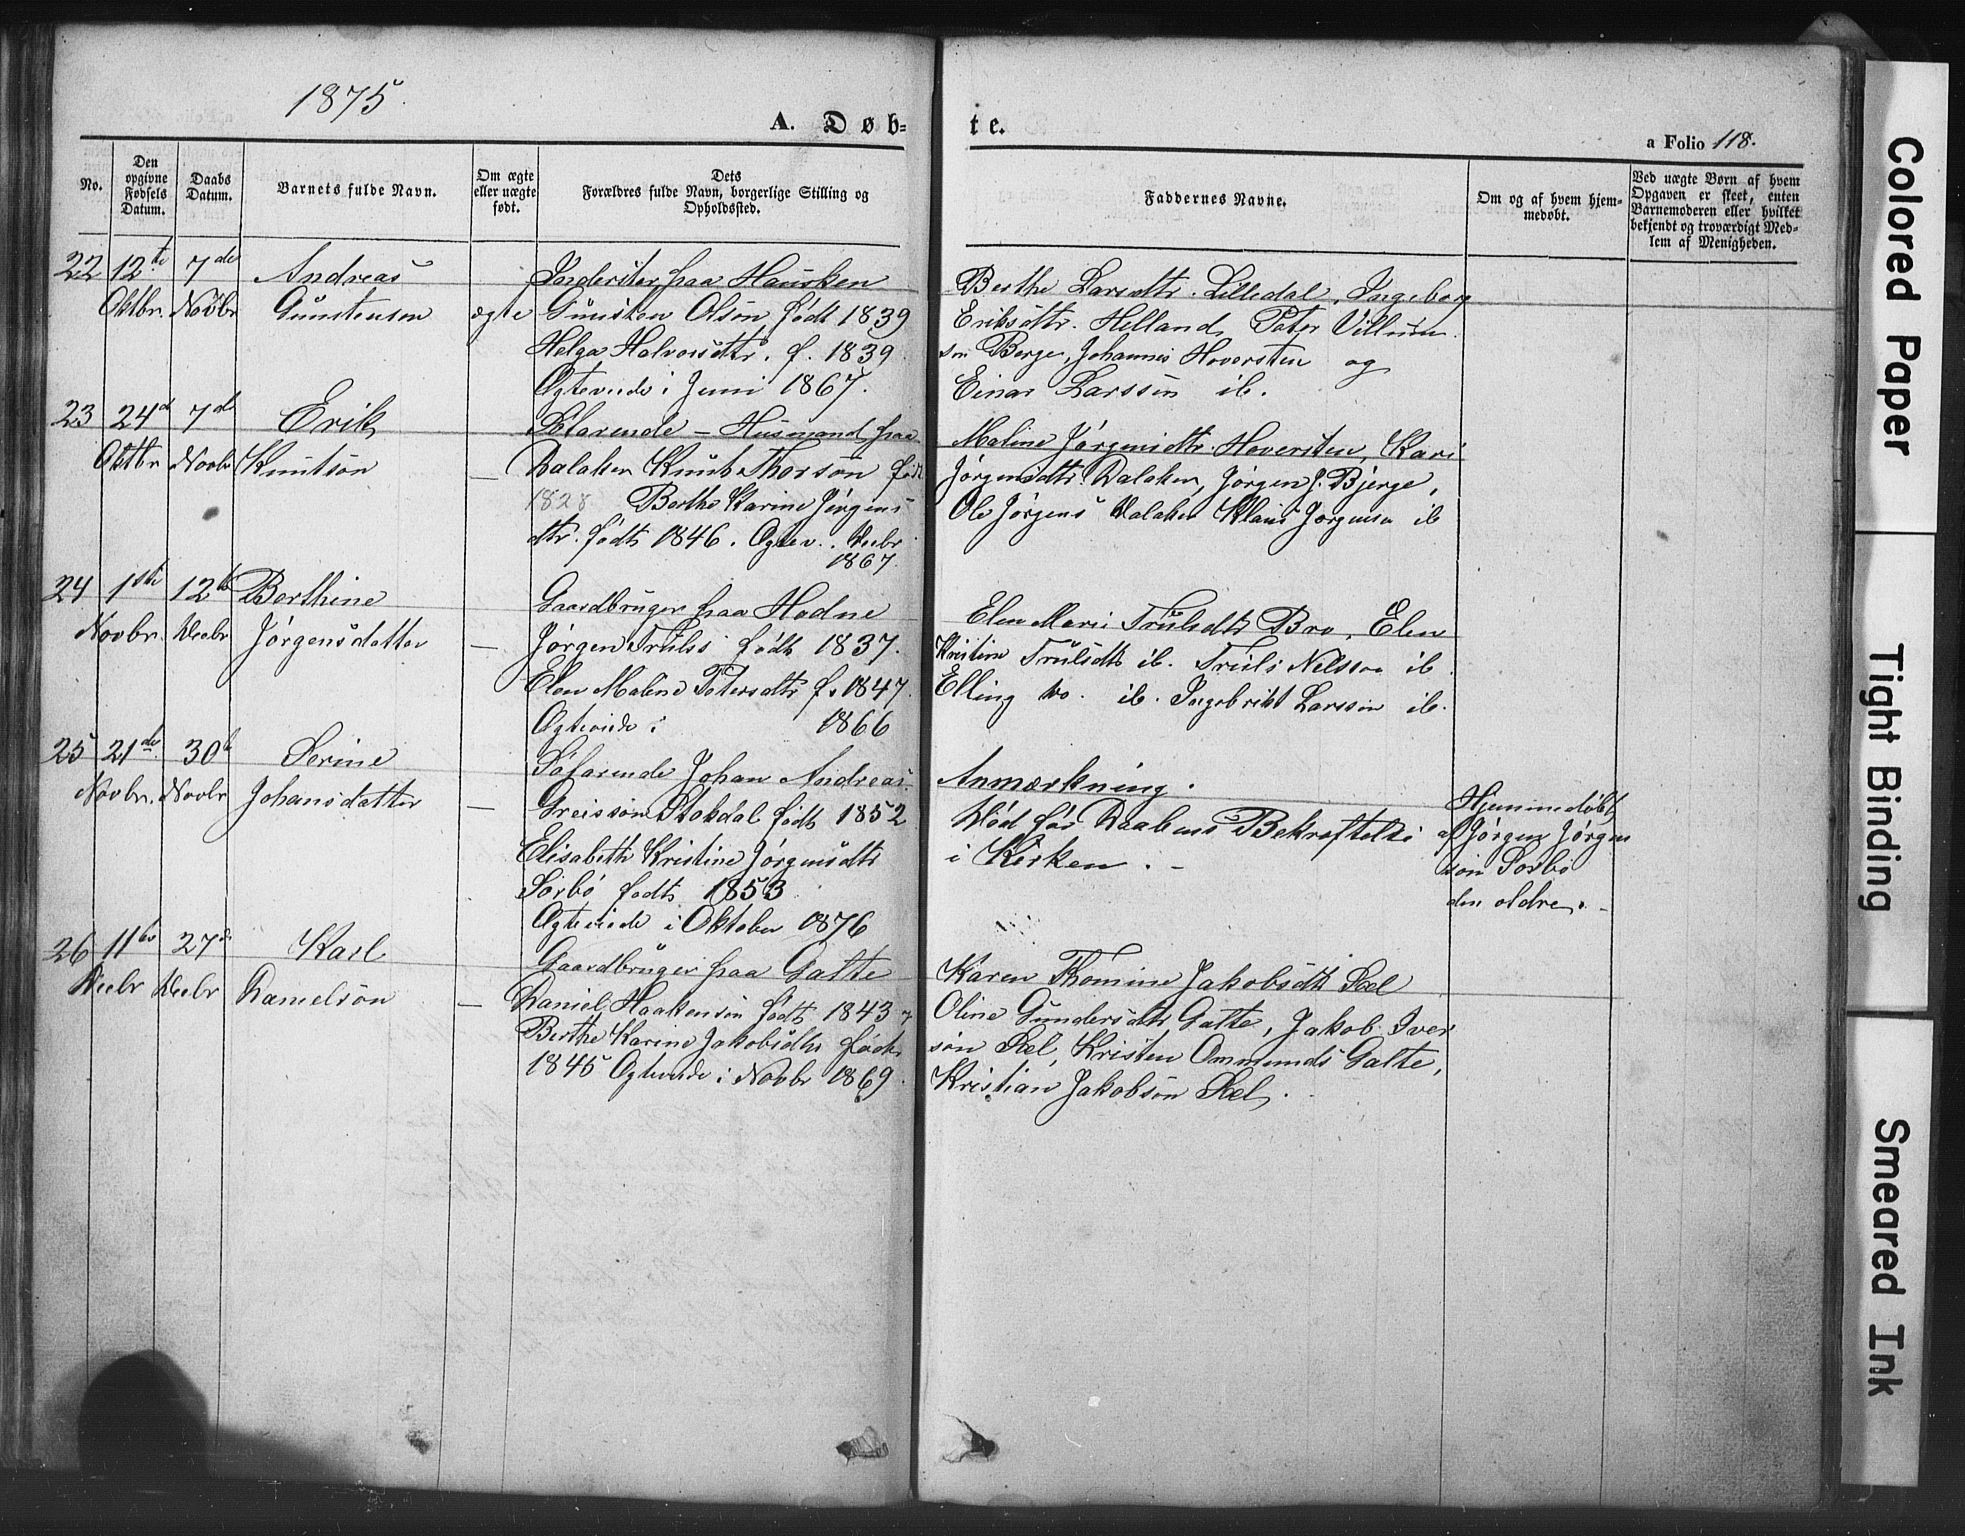 1875.
A. Døb-
te.
a Folio 118.
No.
Den opgivne Fødsels Datum.
Daabs Datum.
Barnets fulde Navn.
Om ægte eller uægte født.
Dets
Forældres fulde Navn, borgerlige Stilling og
Opholdssted.
Faddernes Navne.
Om og af hvem hjem-
medøbt.
Ved uægte Børn af hvem
Opgaven er skeet, enten
Barnemoderen eller hvilket
bekjendt og troværdigt Med-
lem af Menigheden.
22 12te Oktbr. 7de Novbr
Andreas
Gunstensen
ægte
Inderster fraa Hausken
Gunsten Olsøn født 1839
Helga Halvorsdtr. f. 1839.
Ægteviede i Juni 1867.
Berthe Larsdtr. Lilledal, Ingeborg
Eriksdtr. Helland, Peter Villum
søn Berge, Johannes Hoversten og
Einar Larssøn ib.
23 24d Oktbr 7de Novbr
Erik
Knutsøn
—
Søfarende – Husmand fraa
Dalaker Knut Thorsøn født
1828 Berthe Karine Jørgens
dtr. født 1846. Ægtev. Decbr
1867.
Maline Jørgensdtr. Hoversten, Kari
Jørgensdtr. Dalaker, Jørgen J. Bjerge,
Ole Jørgens Dalaker Klaus Jørgensen ib
24 1ste Novbr. 12te Decbr
Berthine
Jørgensdatter
—
Gaardbruger fraa Hodne
Jørgen Trulss født 1837.
Elen Maline Petersdtr f. 1847.
Ægteviede i 1866
Elen Marie Trulsdtr Bro, Elen
Kristine Trulsdtr ib. Truls Nelsson ib
Elling do. ib. Ingebrikt Larssøn ib.
25 21de Novbr. 30te Novbr
Serine
Johansdatter
—
Søfarende Johan Andreas
Greissøn Stokdal født 1852
Elisabeth Kristine Jørgensdtr
Sørbø født 1853
Ægteviede i Oktober 1876
Anmærkning.
Død før Daabens Bekræftelse
i Kirken. –
Hjemmedøbt
af Jørgen Jørgen
søn Sørbø
den ældre. –
26 11te Decbr 27de Decbr
Karl
Danielsøn
—
Gaardbruger fraa Galte
Daniel Haakensøn født 1843
Berthe Karine Jakobsdtr født
1845 Ægteviede i Novbr 1869.
Karen Thomine Jakobsdtr Sel
Oline Gundersdtr Galte, Jakob Iver
søn Sel, Kristen Ommunds Galte,
Kristian Jakobsøn Sel.
Colored Paper
Tight Binding
Smeared Ink